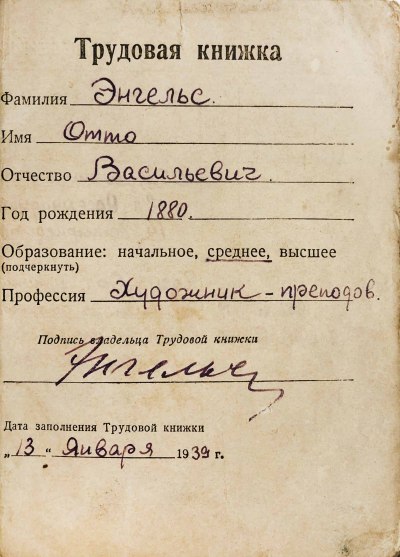 Трудовая книжка
Фамилия Энгельс.
Имя Отто
Отчество Васильевич.
Год рождения 1880.
Образование: начальное, среднее, высшее
(подчеркнуть)
Профессия Художник - преподов.
Подпись владельца Трудовой книжки
Энгельс
Дата заполнения Трудовой книжки
„13“ Января 1939 г.